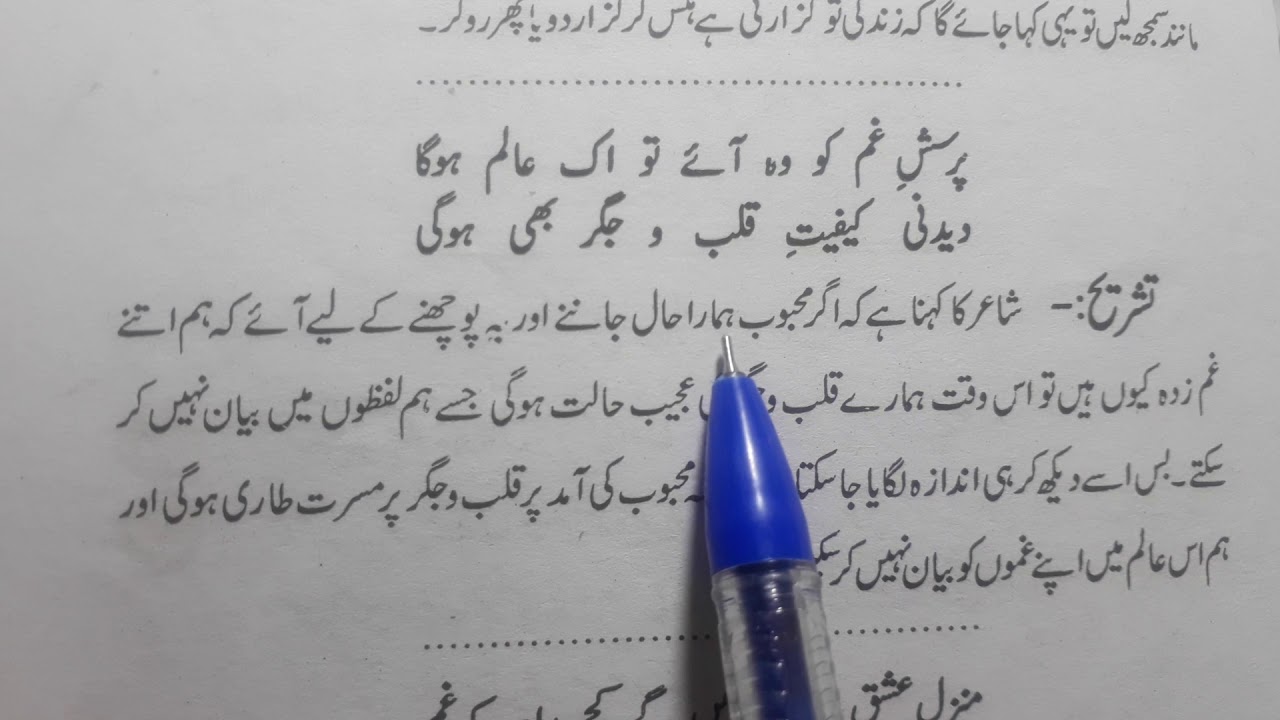 مانند سمجھ لیں تو یہی کہا جائے گا کہ زندگی تو گزارنی ہے ہنس کر گزار دو یا پھر رو کر۔
پرسشِ غم کو وہ آئے تو اک عالم ہوگا
دیدنی کیفیتِ قلب و جگر بھی ہوگی
تشریح:- شاعر کا کہنا ہے کہ اگر محبوب ہمارا حال جاننے اور یہ پوچھنے کے لیے آئے کہ ہم اتنے
غم زدہ کیوں ہیں تو اس وقت ہمارے قلب و عجیب حالت ہوگی جسے ہم لفظوں میں بیان نہیں کر
سکتے۔ بس اسے دیکھ کر ہی اندازہ لگایا جا سکتا محبوب کی آمد پر قلب و جگر پر مسرت طاری ہوگی اور
ہم اس عالم میں اپنے غموں کو بیان نہیں کر
منزل عشق